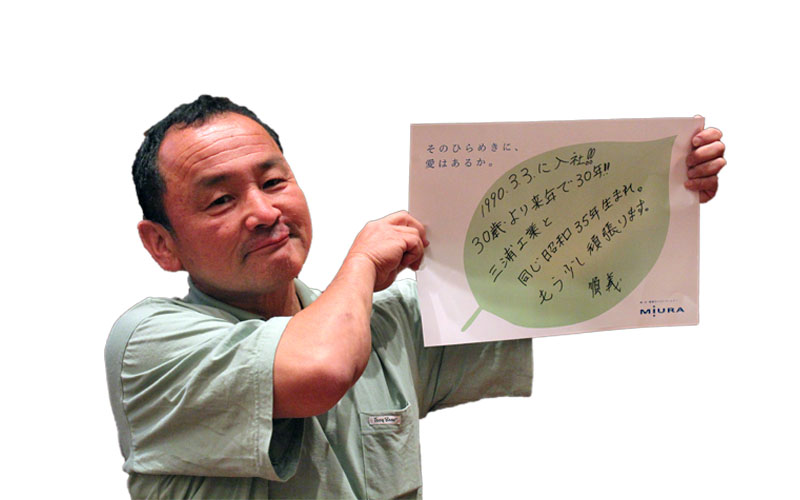 そのひらめきに、
愛はあるか。
1990.3.3.に入社!!!
30歳より来年で30年!!
三浦工業と
同じ昭和35年生まれ。
もう少し頑張ります。
MIURA